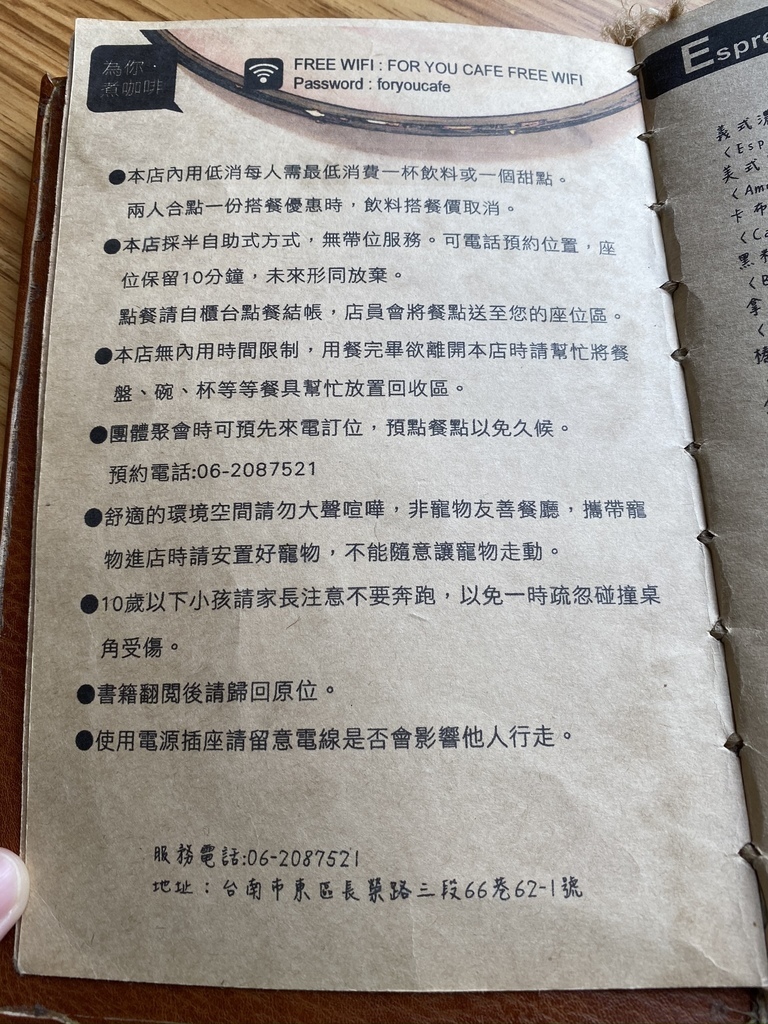 為你，
煮咖啡
FREE WIFI : FOR YOU CAFE FREE WIFI
Password : foryoucafe
●本店內用低消每人需最低消費一杯飲料或一個甜點。
兩人合點一份搭餐優惠時，飲料搭餐價取消。
●本店採半自助式方式，無帶位服務。可電話預約位置，座
位保留10分鐘，未來形同放棄。
點餐請自櫃台點餐結帳，店員會將餐點送至您的座位區。
●本店無內用時間限制，用餐完畢欲離開本店時請幫忙將餐
盤、碗、杯等等餐具幫忙放置回收區。
●團體聚會時可預先來電訂位，預點餐點以免久候。
預約電話:06-2087521
●舒適的環境空間請勿大聲喧嘩，非寵物友善餐廳，攜帶寵
物進店時請安置好寵物，不能隨意讓寵物走動。
●10歲以下小孩請家長注意不要奔跑，以免一時疏忽碰撞桌
角受傷。
●書籍翻閱後請歸回原位。
●使用電源插座請留意電線是否會影響他人行走。
服務電話:06-2087521
地址：台南市東區長榮路三段66巷62-1號
Espre
義式濃
美式
卡布
黑
拿